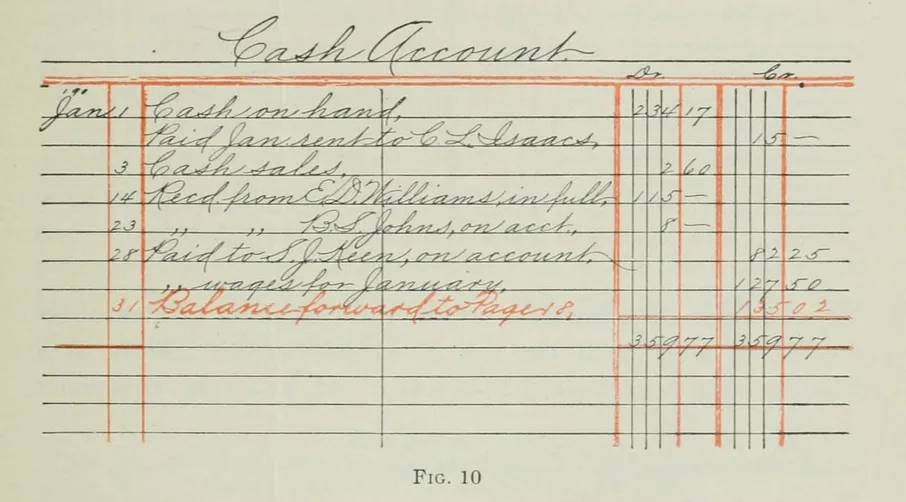 Cash Account.
Dr. Cr.
'9'
Jan 1 Cash on hand, 234 17
Paid Jan rent to C. L. Isaacs, 15 —
3 Cash sales, 2 60
14 Recd. from E. D. Williams, in full, 115 —
23 ,, ,, B. S. Johns, on acct., 8 —
28 Paid to S. J. Keen, on account, 82 25
,, wages for January, 127 50
31 Balance forward to Page 18, 135 02
359 77 359 77
FIG. 10